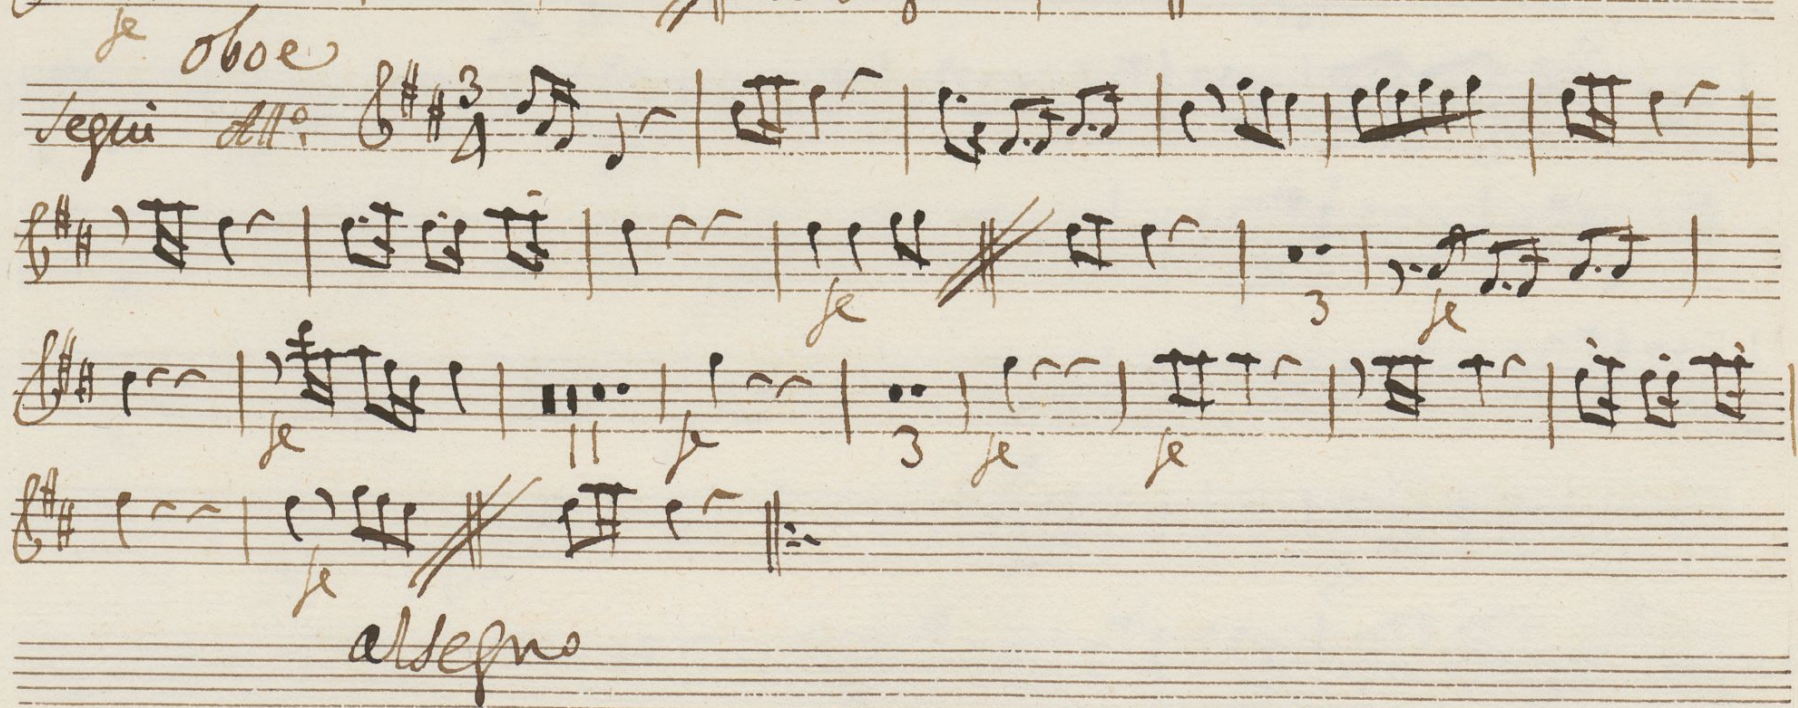 fe
oboe
Segui All.º 3/4
fe 3 fe
fe 11 fe 3 fe fe
fe
al segno